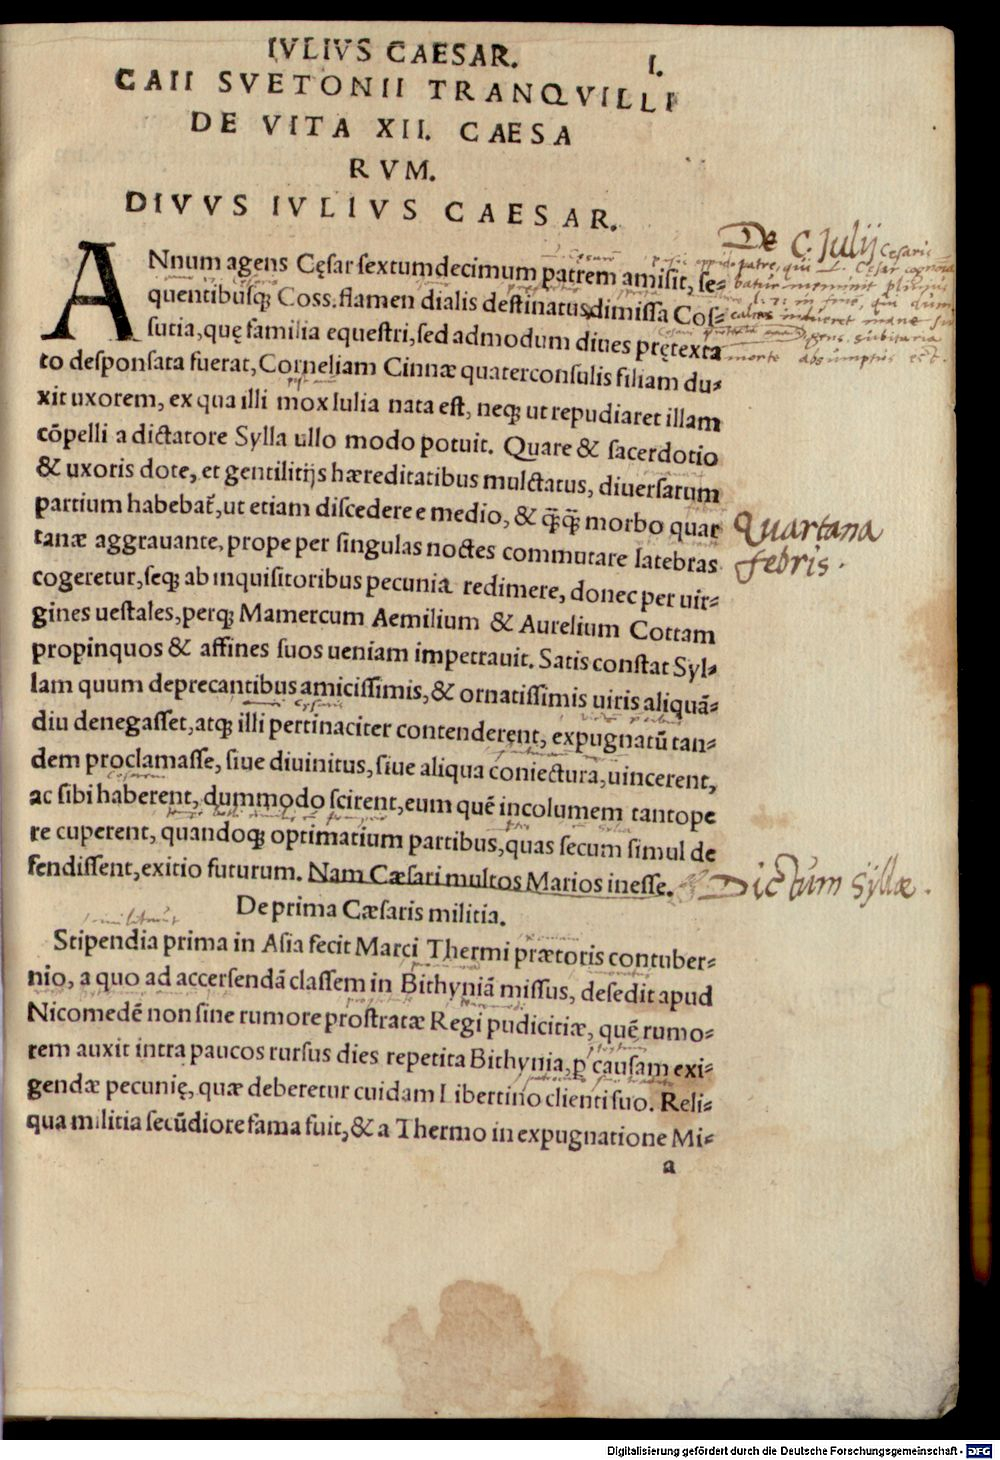 IVLIVS CAESAR.
I.
CAII SVETONII TRANQVILLI
DE VITA XII. CAESA
RVM.
DIVVS IVLIVS CAESAR.
ANnum agens Cęſar ſextumdecimum patrem amiſit, ſe-
quentibuſq; Coss. flamen dialis deſtinatus, dimiſſa Coſ-
ſutia, quę familia equeſtri, ſed admodum diues prętexta
to deſponſata fuerat, Corneliam Cinnæ quaterconſulis filiam du-
xit uxorem, ex qua illi mox Iulia nata eſt, neq; ut repudiaret illam
cōpelli a dictatore Sylla ullo modo potuit. Quare & ſacerdotio
& uxoris dote, et gentilitijs hæreditatibus mulctatus, diuerſarum
partium habebat̃, ut etiam diſcedere e medio, & q̃q̃ morbo quar
tanæ aggrauante, prope per ſingulas noctes commutare latebras
cogeretur, ſeq; ab inquiſitoribus pecunia redimere, donec per uir-
gines ueſtales, perq; Mamercum Aemilium & Aurelium Cottam
propinquos & affines ſuos ueniam impetrauit. Satis conſtat Syl-
lam quum deprecantibus amiciſſimis, & ornatiſſimis uiris aliquā-
diu denegaſſet, atq; illi pertinaciter contenderent, expugnatū tan-
dem proclamaſſe, ſiue diuinitus, ſiue aliqua coniectura, uincerent,
ac ſibi haberent, dummodo ſcirent, eum quē incolumem tantope
re cuperent, quandoq; optimatium partibus, quas ſecum ſimul de
fendiſſent, exitio futurum. Nam Cæſari multos Marios ineſſe.
De prima Cæſaris militia.
Stipendia prima in Aſia fecit Marci Thermi prætoris contuber-
nio, a quo ad accerſendā claſſem in Bithyniā miſſus, deſedit apud
Nicomedē non ſine rumore proſtratæ Regi pudicitiæ, quē rumo-
rem auxit intra paucos rurſus dies repetita Bithynia, p̱ cauſam exi-
gendæ pecunię, quæ deberetur cuidam Libertino clienti ſuo. Reli-
qua militia ſecūdiore fama fuit, & a Thermo in expugnatione Mi-
a
De C. Julij Cesaris
patre, qui L. Cesar
meminit plinius
morte absumptus est.
Quartana
febris.
Dictum Syllæ.
Digitalisierung gefördert durch die Deutsche Forschungsgemeinschaft - DFG